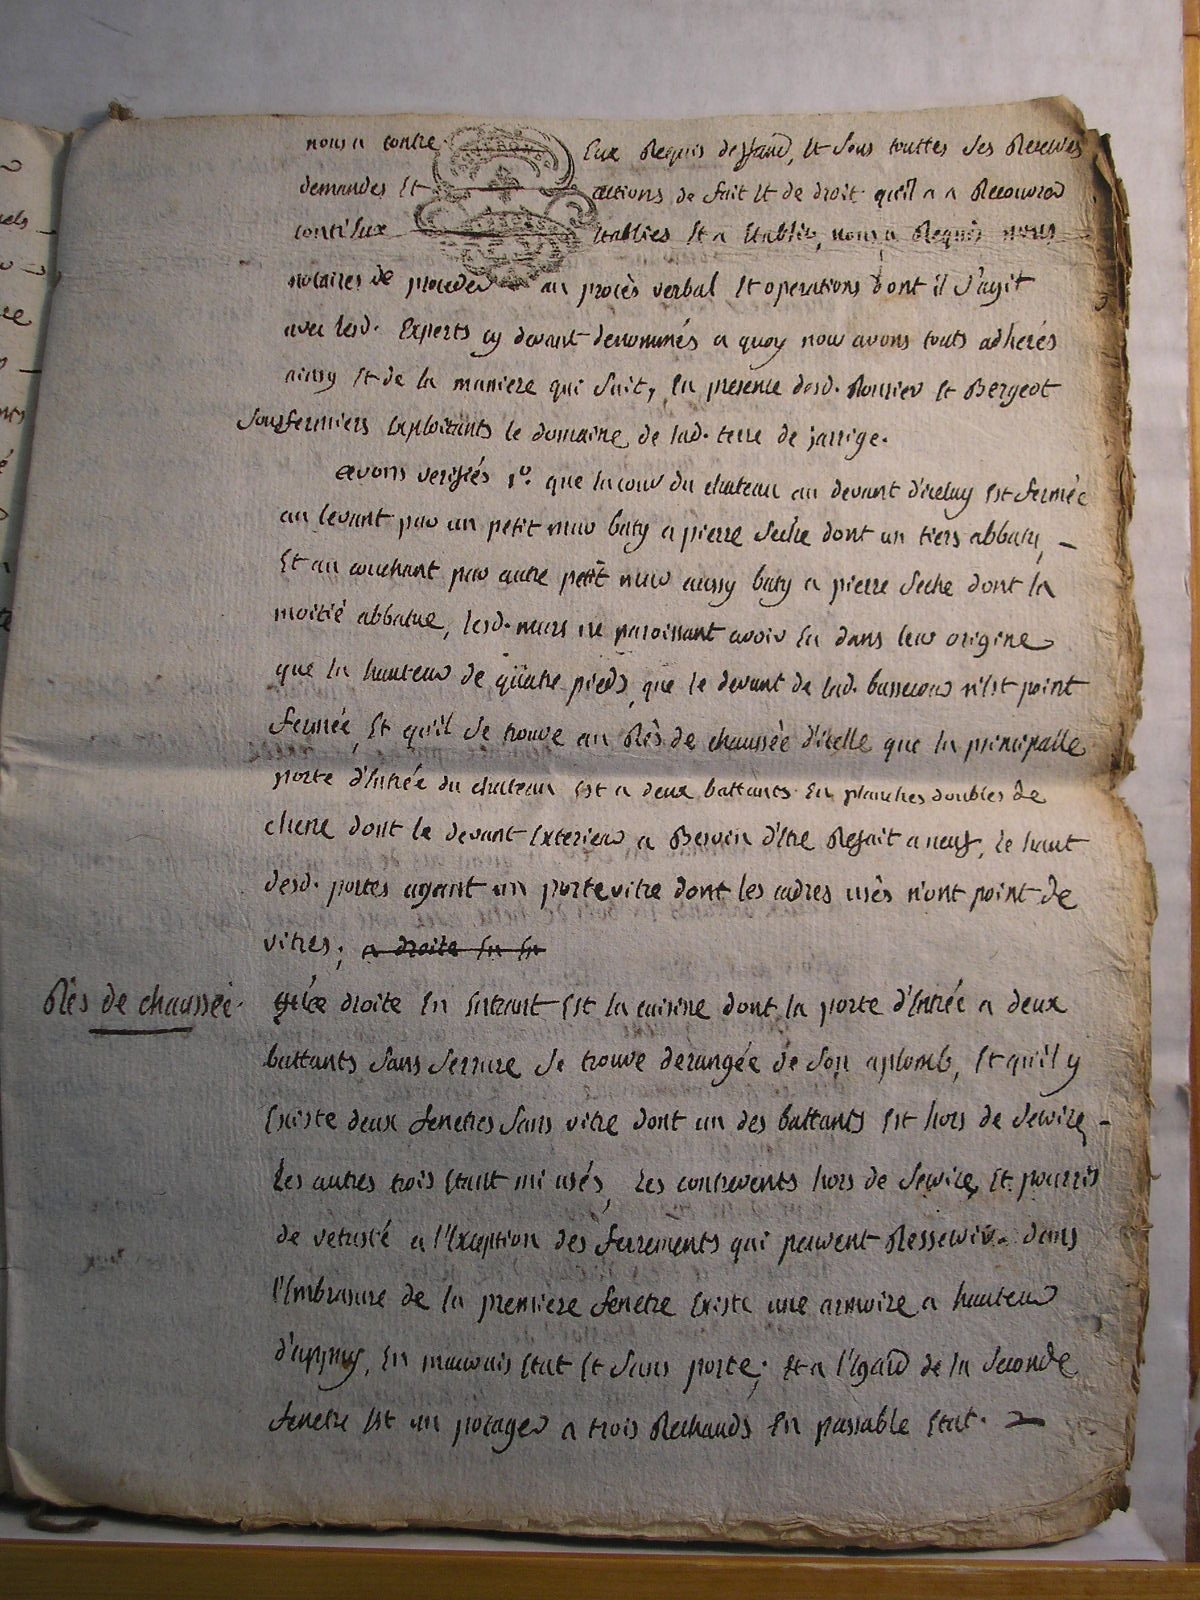 nous a contre Eux Requis deffaud, Et sous touttes ses Reserves
demandes Et actions de fait Et de droit qu'il a a Recouvrer
contr'Eux Etablies Et a Etablir, nous a Requis nous
notaires de proceder au procès verbal Et operations dont il s'agit
avec lesd. Experts cy devant denommés a quoy nous avons touts adherés
ainsy Et de la maniere qui suit, En presence desd. Roussier Et Bergeot
sousfermiers Exploitants le domaine de lad. terre de jarrige.
avons verifiés 1º. que la cour du chateau au devant d'iceluy Est fermée
au levant par un petit mur baty a pierre seche dont un tiers abbatu, –
Et au couchant par autre petit mur aussy baty a pierre seche dont la
moitié abbatue, lesd. murs ne paroissant avoir Eu dans leur origine
que la hauteur de quatre pieds, que le devant de lad. bassecour n'Est point
fermée, Et qu'il se trouve au Rés de chaussée d'icelle que la principalle
porte d'Entrée du chateau Est a deux battants En planches doubles de
chene dont le devant Exterieur a Besoin d'Etre Refait a neuf, le haut
desd. portes ayant un portevitre dont les cadres usés n'ont point de
vitres; a droite En En
Rés de chaussée. droite En Entrant Est la cuisine dont la porte d'Entrée a deux
battants sans serrure se trouve derangée de son aplomb, Et qu'il y
Existe deux fenetres sans vitre dont un des battants Est hors de service –
Les autres trois Etant mi usés, Les contrevents hors de service, Et pourris
de vetusté a l'Exception des ferrements qui peuvent Resservir. dans
l'Embrasure de la premiere fenetre Existe une armoire a hauteur
d'appuy, En mauvais Etat Et sans porte; Et a l'Egard de la seconde
fenetre Est un potager a trois Rechauds En passable Etat.